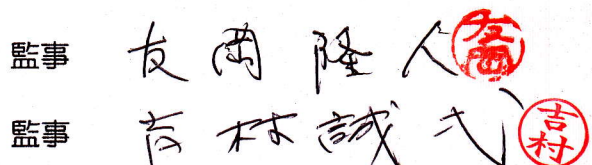 監事 友岡隆人 友岡
監事 吉村誠弐 吉村